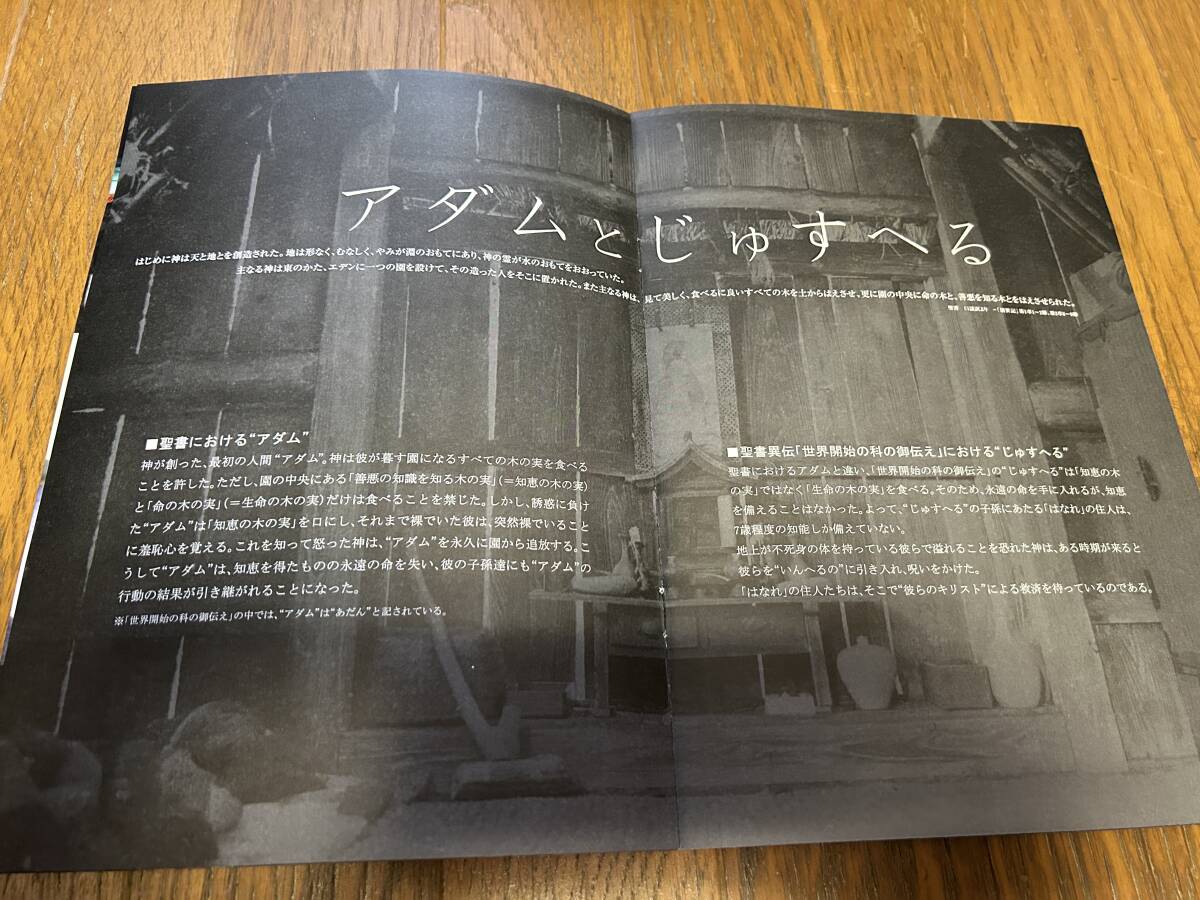 アダムとじゅすへる
はじめに神は天と地とを創造された。地は形なく、むなしく、やみが淵のおもてにあり、神の霊が水のおもてをおおっていた。
主なる神は東のかた、エデンに一つの園を設けて、その造った人をそこに置かれた。また主なる神は、見て美しく、食べるに良いすべての木を土からはえさせ、更に園の中央に命の木と、善悪を知る木とをはえさせられた。
聖書 口語訳より -「創世記」第1章1〜2節、第2章8〜9節
■聖書における“アダム”
神が創った、最初の人間“アダム”。神は彼が暮す園になるすべての木の実を食べる
ことを許した。ただし、園の中央にある「善悪の知識を知る木の実」(=知恵の木の実)
と「命の木の実」(=生命の木の実)だけは食べることを禁じた。しかし、誘惑に負け
た“アダム”は「知恵の木の実」を口にし、それまで裸でいた彼は、突然裸でいること
に羞恥心を覚える。これを知って怒った神は、“アダム”を永久に園から追放する。こ
うして“アダム”は、知恵を得たものの永遠の命を失い、彼の子孫達にも“アダム”の
行動の結果が引き継がれることになった。
※「世界開始の科の御伝え」の中では、“アダム”は“あだん”と記されている。
■聖書異伝「世界開始の科の御伝え」における“じゅすへる”
聖書におけるアダムと違い、「世界開始の科の御伝え」の“じゅすへる”は「知恵の木
の実」ではなく「生命の木の実」を食べる。そのため、永遠の命を手に入れるが、知恵
を備えることはなかった。よって、“じゅすへる”の子孫にあたる「はなれ」の住人は、
7歳程度の知能しか備えていない。
地上が不死身の体を持っている彼らで溢れることを恐れた神は、ある時期が来ると
彼らを“いんへるの”に引き入れ、呪いをかけた。
「はなれ」の住人たちは、そこで“彼らのキリスト”による救済を待っているのである。